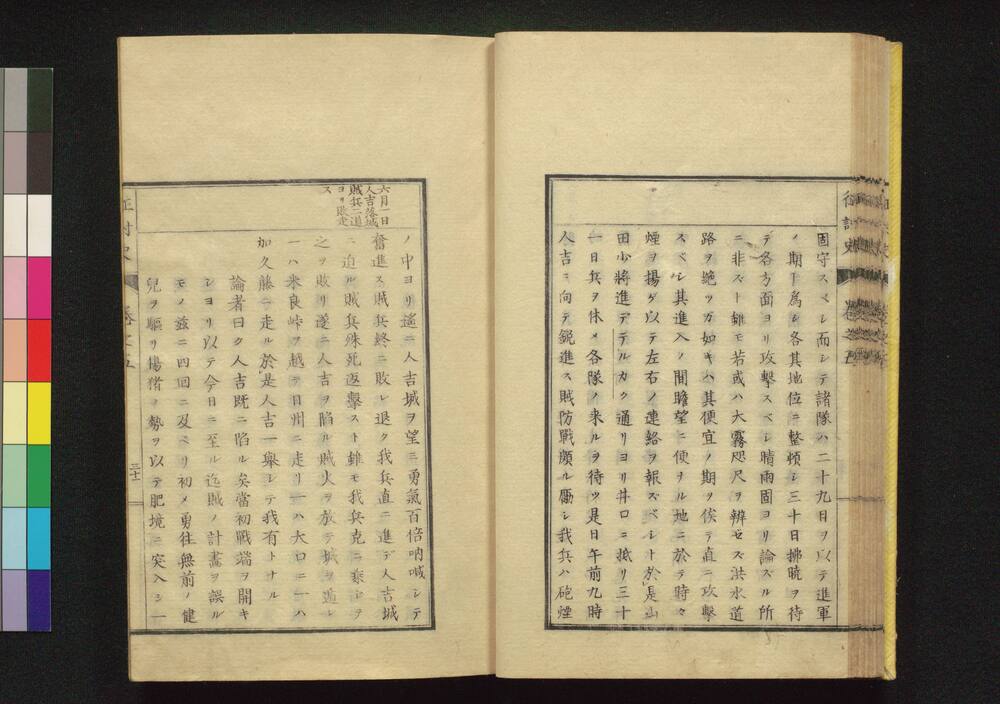 固守スベシ而シテ諸隊ハ二十九日ヲ以テ進軍
ノ期ト為シ各其地位ニ整頓シ三十日拂暁ヲ待
テ各方面ヨリ攻撃スベシ晴雨固ヨリ論ズル所
ニ非ズト雖モ若或ハ大霧咫尺ヲ辨ゼズ洪水道
路ヲ絶ツガ如キハ其便宜ノ期ヲ俟テ直ニ攻撃
スベシ其進入ノ間瞻望ニ便ナル地ニ於テ時々
煙ヲ揚ゲ以テ左右ノ連絡ヲ報ズベシト於是山
田少将進デテルカク通リヨリ井口ニ抵リ三十
一日兵ヲ休メ各隊ノ来ルヲ待ツ是日午前九時
人吉ニ向テ鋭進ス賊防戰頗ル勵シ我兵ハ砲煙
征討史
卷之五
六月一日
人吉落城
賊兵二道
ヨリ敗走
ス
ノ中ヨリ遙ニ人吉城ヲ望ミ勇氣百倍吶喊シテ
奮進ス賊兵終ニ敗レ退ク我兵直ニ進デ人吉城
ニ迫ル賊兵殊死返撃スト雖モ我兵克ニ乗シヲ
之ヲ敗リ遂ニ人吉ヲ陷ル賊火ヲ放テ城ヲ遁レ
一ハ米良峠ヲ越テ日州ニ走リ一ハ大口ニ一ハ
加久藤ニ走ル於是人吉一舉シテ我有トナル
論者曰ク人吉既ニ陷ル矣當初戰端ヲ開キ
シヨリ以テ今日ニ至ル迄賊ノ計畫ヲ誤ル
モノ茲ニ四回ニ及ベリ初メ勇往無前ノ健
兒ヲ驅リ揚猪ノ勢ヲ以テ肥境ニ突入シ一
征討史
卷之五
三十一